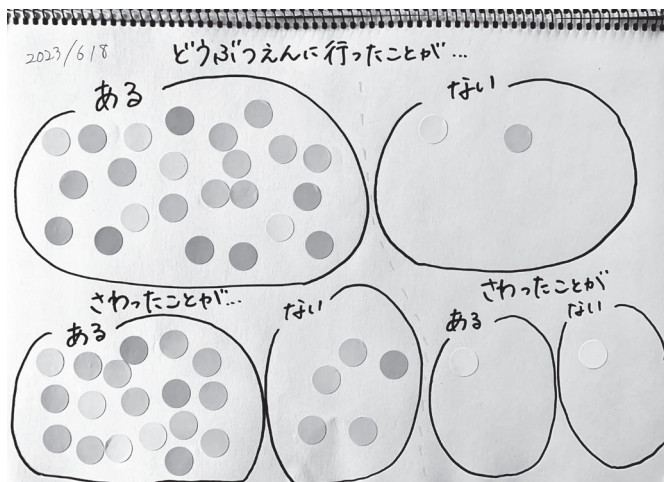 2023/6/8
どうぶつえんに行ったことが...
ある
ない
さわったことが...
ある
ない
さわったことが
ある
ない